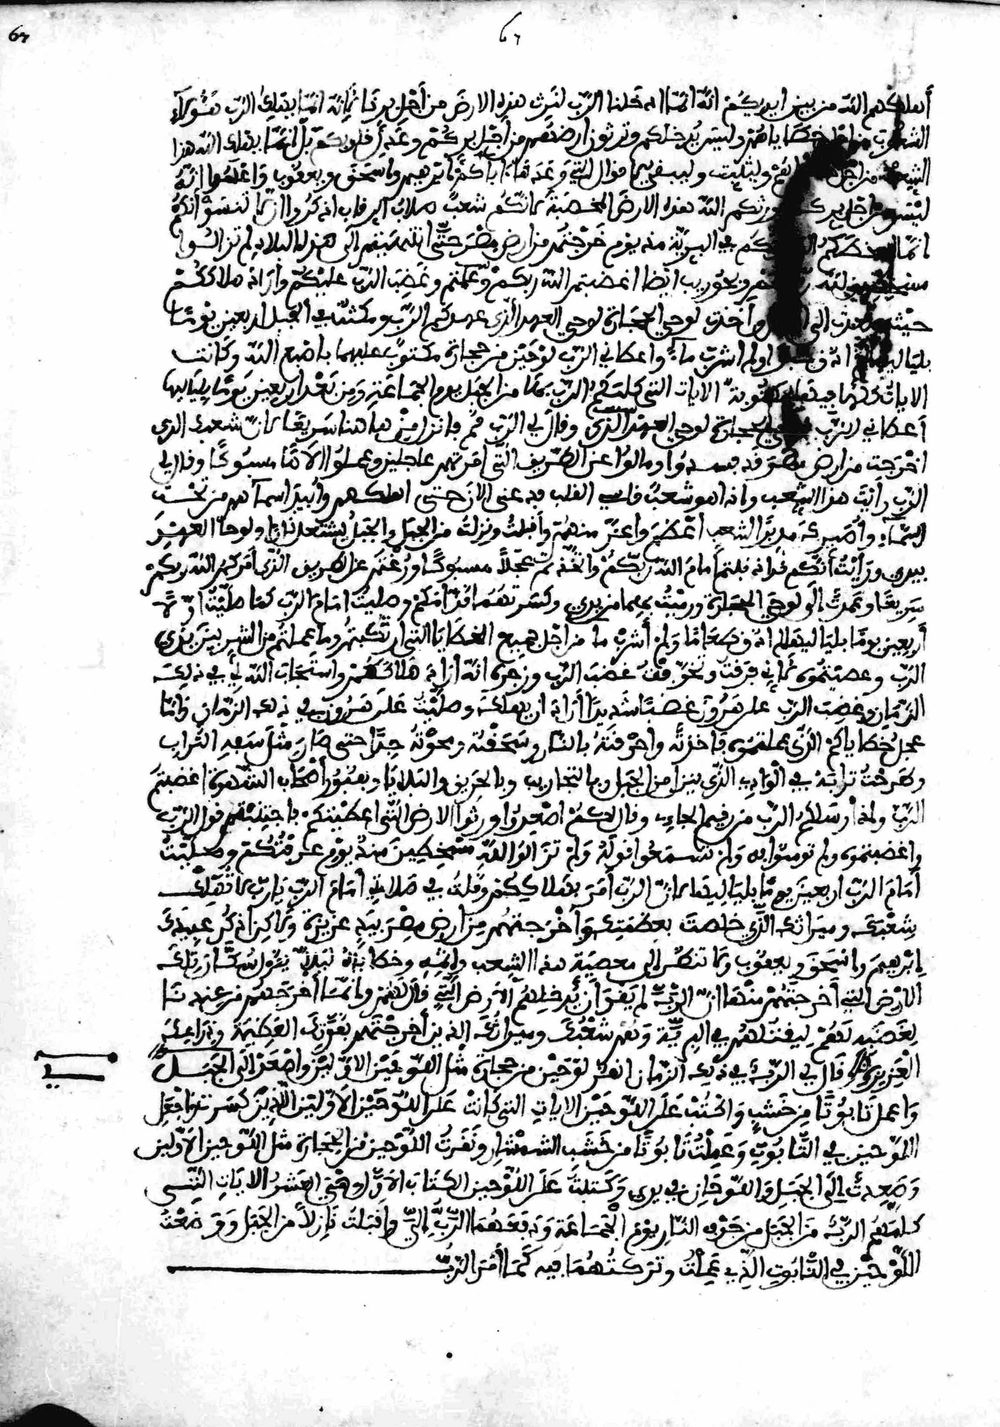 67 67
أهلكهم الله من بين ايديكم انه انما ادخلنا الرب لنرث هذه الارض من أجل برنا فانه انما يهلك الرب هٰؤلاء
الشعوب من اجل خطاياهم وليس يدخلكم وترثون ارضهم من أجل بركم وعدل قلوبكم بل انما يهلك الله هذا
الشعب من اجل وليثبت قوله التي وعد بها آباءكم ابرهيم واسحق ويعقوب واعلموا انه
ليس من اجل بركم يورثكم الله هذه الارض المخصبة لانكم شعب صلاب الرقاب اذكروا ولا تنسوا انكم
انما اسخطتم الله ربكم في البرية منذ يوم خرجتم من ارض مصر حتى انتهيتم الى هذه البلاد لم تزالوا
مسخطين لله وبحوريب ايضا اغضبتم الله ربكم وغضب الرب عليكم واراد هلاككم
حيث صعدت الى الجبل وأخذت لوحي الحجارة لوحي العهد الذي عهدكم الرب ومكثت في الجبل اربعين يوما
بلياليها لم اذق ولم اشرب ماء واعطاني الرب لوحين من حجارة مكتوب عليهما باصبع الله وكانت
الايات كلها مكتوبة الايات التي كلمكم الرب بها من الجبل يوم الجماعة ومن بعد اربعين يوما بلياليها
أعطاني الرب لوحي الحجارة لوحي العهد الذي وقال لي الرب قم فانزل من هاهنا سريعا لان شعبك الذي
اخرجت من ارض مصر قد فسدوا ومالوا عن الطريق التي امرتهم عاجلين وعملوا الاها مسبوكا وقال لي
الرب رأيت هذا الشعب واذا هو شعب قاسي القلب فدعني الان حتى اهلكهم وأبيد اسماءهم من تحت
السماء وأصيرك مدبرا لشعب أعظم وأعز منهم وأقبلت ونزلت من الجبل والجبل يشتعل نارا ولوحا العهد
بيدي ورأيت أنكم قد اذنبتم أمام الله ربكم واتخذتم عجلا مسبوكا وزغتم عن الطريق الذي أمركم الله ربكم
سريعا وعمدت الى لوحي الحجارة ورميت بهما من يدي وكسرتهما قدامكم وصليت امام الرب كما صليت اولا
أربعين يوما بلياليها لم اذق طعاما ولم أشرب ماء من اجل جميع الخطايا التي ارتكبتم وما عملتم من الشر بين يدي
الرب وعصيتموه لاني فرقت وتخوفت غضب الرب وزجره انه أراد هلاككم واستجاب الله لي في ذلك
الزمان وغضب الرب على هرون غضبا شديدا أراد ان يهلكه وصليت على هرون في ذلك الزمان واما
عجل خطاياكم الذي عملتموه فأخذته وأحرقته بالنار وسحقته وبردته جدا حتى صار مثل سهد التراب
وطرحت ترابه في الوادي الذي ينزل من الجبل وبالتجارب وبالحريق والبلايا وبقبور أصحاب الشهوة اغضبتم
الرب ولما أرسلكم الرب من رقيم الجاء وقال لكم اصعدوا ورثوا الارض التي اعطيتكم فاجتنبتم قول الرب
واغضبتموه ولم تومنوا به ولم تسمعوا قوله ولم تزالوا لله مسخطين منذ يوم عرفتكم وصليت
أمام الرب اربعين يوما بلياليها لان الرب أمر بهلاككم وقلت في صلاتي أمام الرب يا رب لا تهلك
شعبك وميراثك الذي خلصت بعظمتك واخرجتهم من ارض مصر بيد عزيزة ولاكن اذكر عبيدك
ابرهيم واسحق ويعقوب ولا تنظر الى معصية هذا الشعب واثمه وخطاياه ليلا يقول سكان تلك
الارض التي أخرجتهم منها ان الرب لم يقو أن يدخلهم الارض التي قال لهم وانما أخرجهم من عندنا
لبغضه لهم ليقتلهم في البرية وهم شعبك وميراثك الذين أخرجتهم بقوتك العظيمة وذراعك
العزيزة وقال لي الرب في ذلك الزمان انقر لوحين من حجارة مثل اللوحين الاولين واصعد الى الجبل
واعمل تابوتا من خشب واكتب على اللوحين الايات التي كانت على اللوحين الاولين الذين كسرتهما واجعل
اللوحين في التابوت وعملت تابوتا من خشب الشمشار ونقرت اللوحين من الحجارة مثل اللوحين الاولين
وصعدت الى الجبل واللوحان في يدي وكتبت على اللوحين الكتاب الاول وهي العشر الايات التي
كلمكم الرب من الجبل من جوف النار يوم الجماعة ودفعهما الرب الي واقبلت نازلا من الجبل ووضعت
اللوحين في التابوت الذي عملت وتركتهما فيه كما أمر الرب